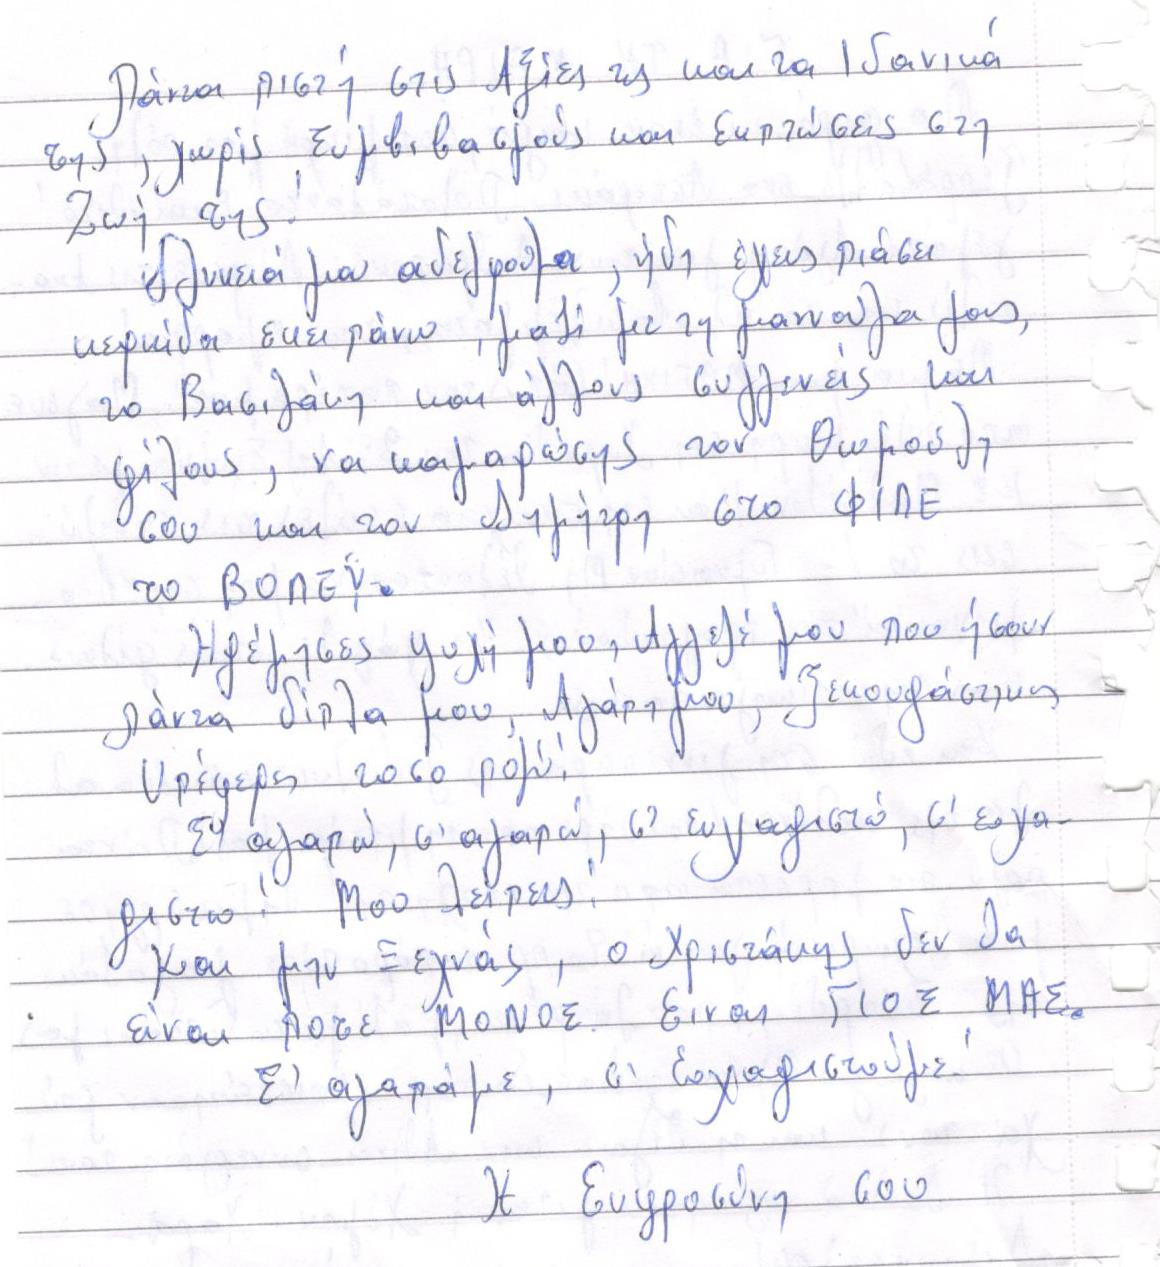 Πάντα πιστή στις Αξίες της και τα Ιδανικά
της, χωρίς Συμβιβασμούς και Εκπτώσεις στη
Ζωή της!
Γλυκειά μου αδελφούλα, ήδη έχεις πιάσει
κερκίδα εκει πάνω, μαζί με τη μαννούλα μας,
το Βασιλάκη και άλλους συγγενείς και
φίλους, να καμαρώσης τον Θωμούλη
σου και τον Δημήτρη στο ΦΙΛΕ
το ΒΟΛΕΫ.
Ηρέμησες ψυχή μου, Αγγελέ μου που ήσουν
πάντα δίπλα μου, Αγάπη μου, ξεκουράστηκες
Υπέφερες τοσο πολύ!
Σ' αγαπώ, σ' αγαπώ, σ' ευχαριστώ, σ' ευχα-
ριστώ! Μου λείπεις!
Και μην Ξεχνάς, ο Χριστάκης δεν θα
είναι ποτε ΜΟΝΟΣ. Ειναι ΓΙΟΣ ΜΑΣ.
Σ' αγαπάμε, σ' Ευχαριστούμε!
Η Ευφροσύνη σου